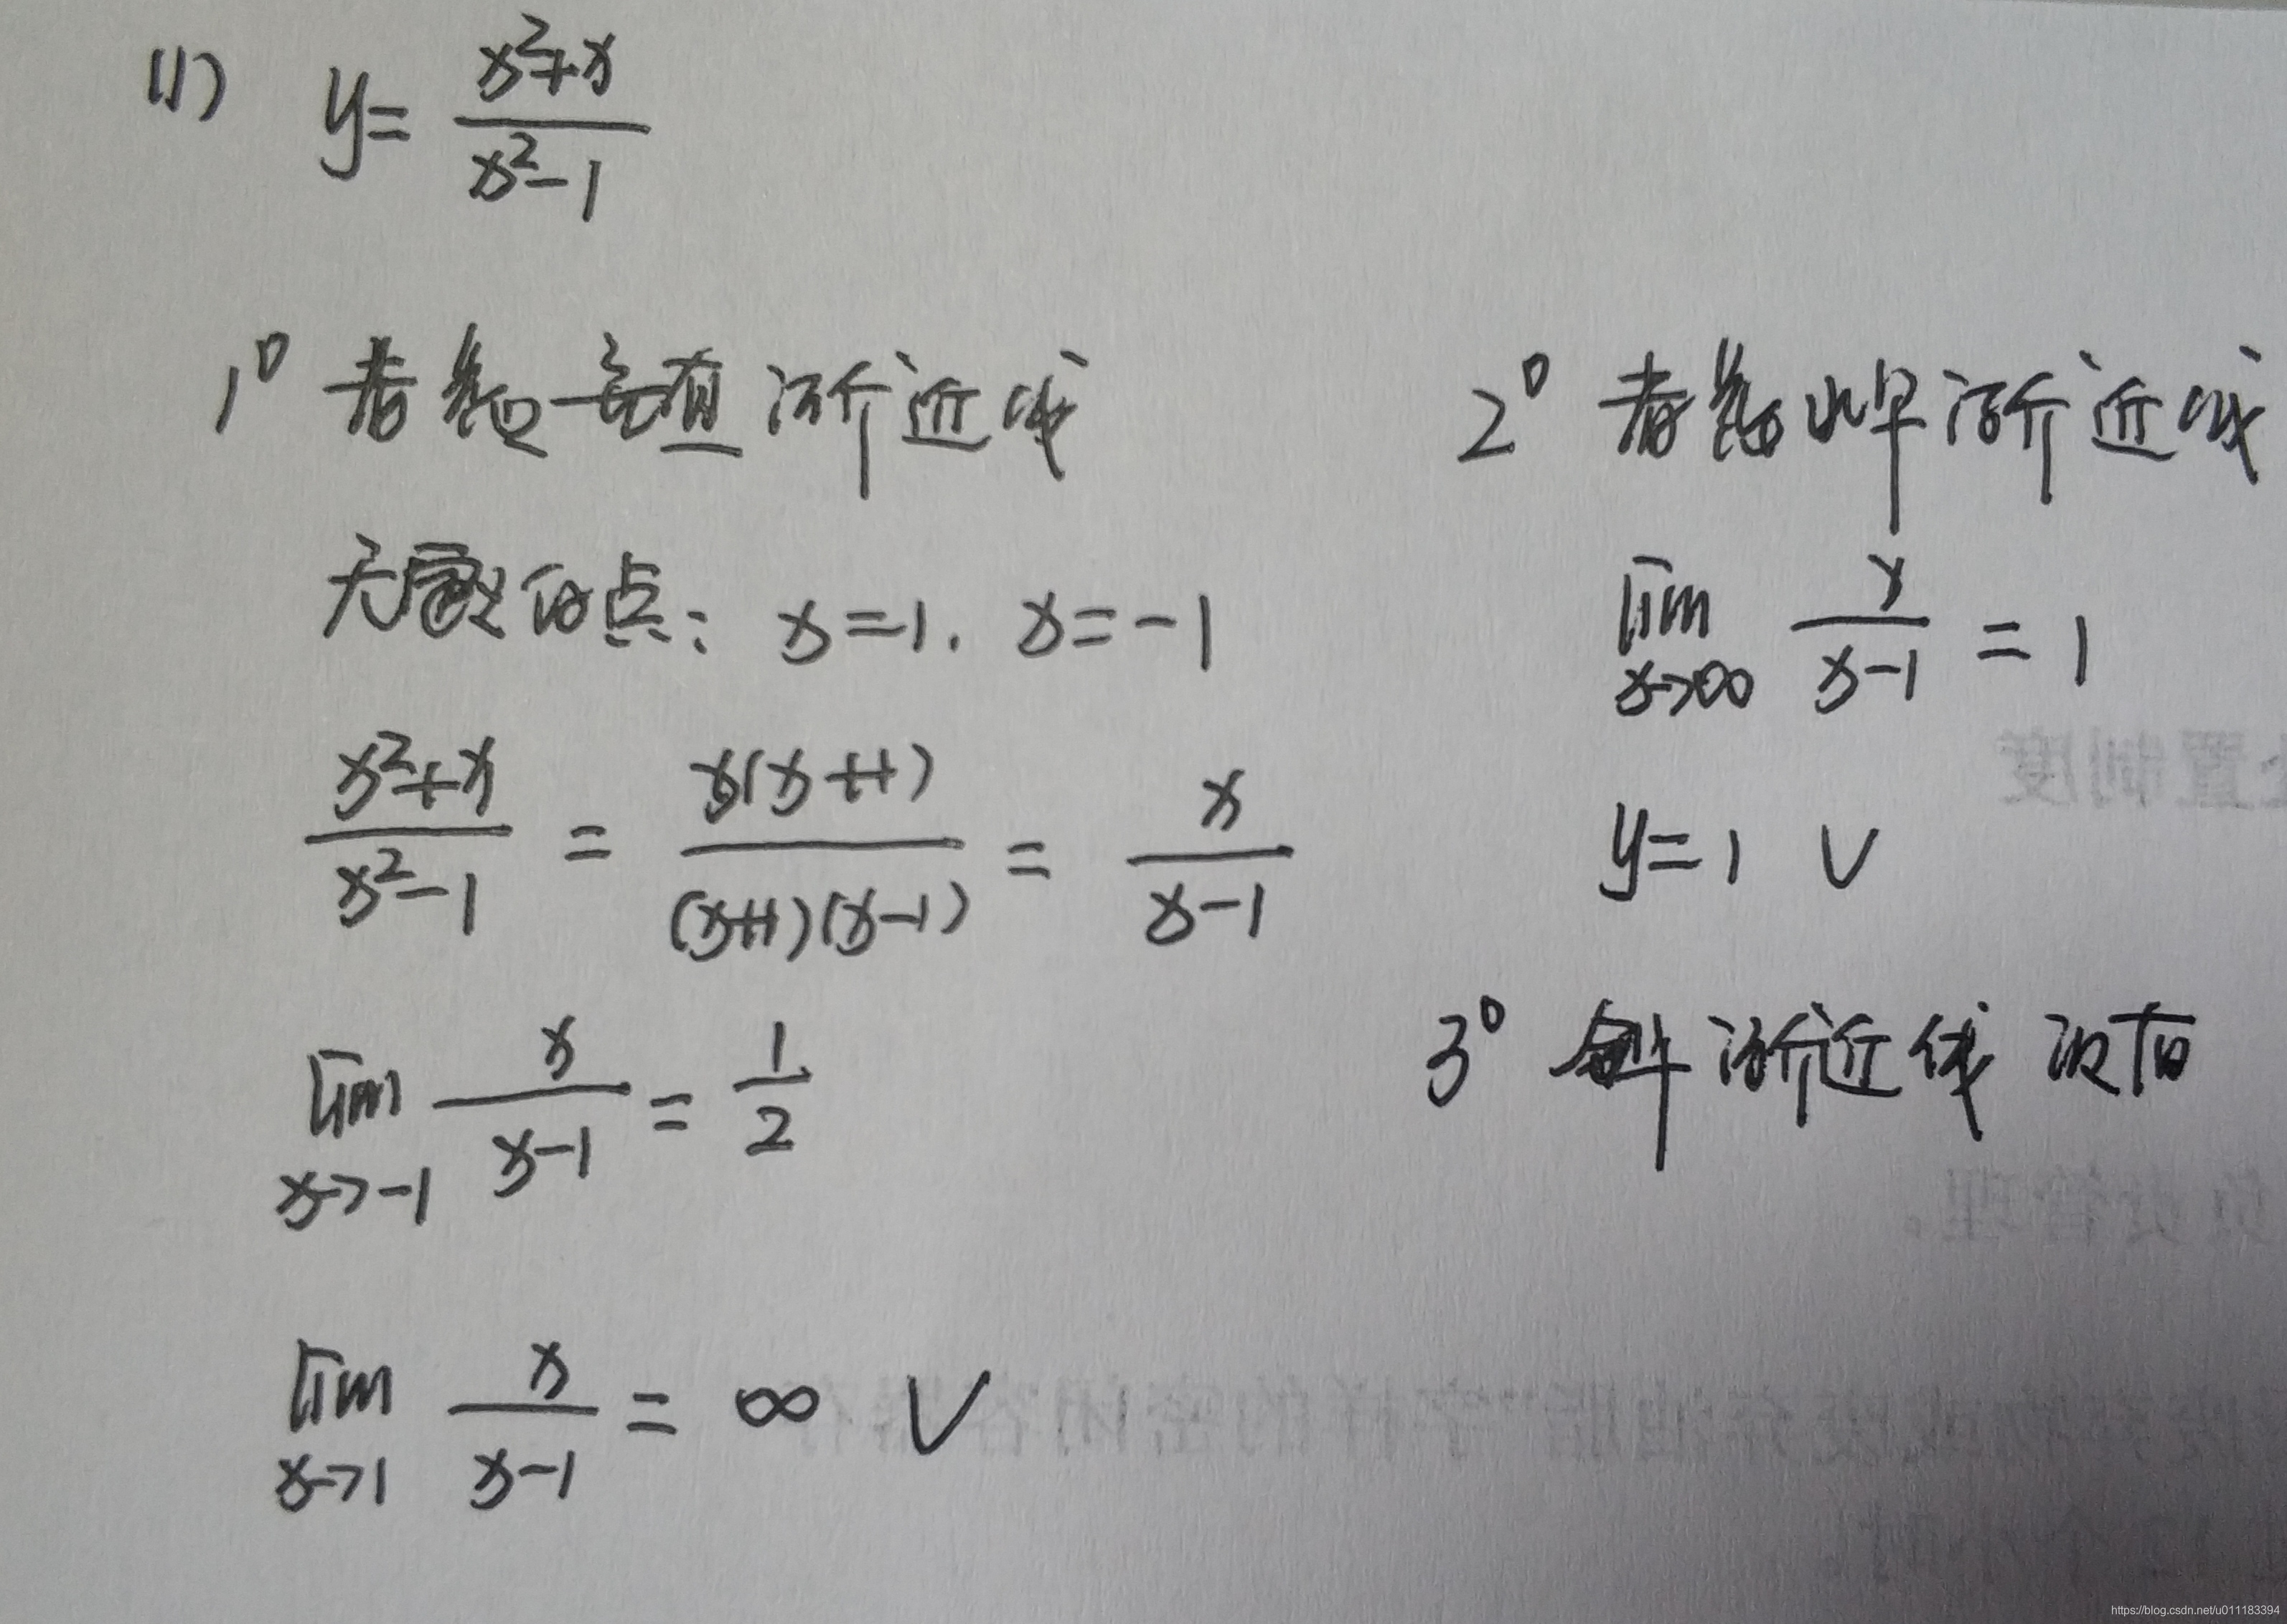 (1) y = (x²+x)/(x²-1)
1° 考虑垂直渐近线
无定义的点: x=1, x=-1
(x²+x)/(x²-1) = x(x+1)/((x+1)(x-1)) = x/(x-1)
lim x→-1 x/(x-1) = 1/2
lim x→1 x/(x-1) = ∞ √
2° 考虑水平渐近线
lim x→∞ x/(x-1) = 1
y=1 √
3° 斜渐近线 没有
置制度
负责管理。
https://blog.csdn.net/u011183394